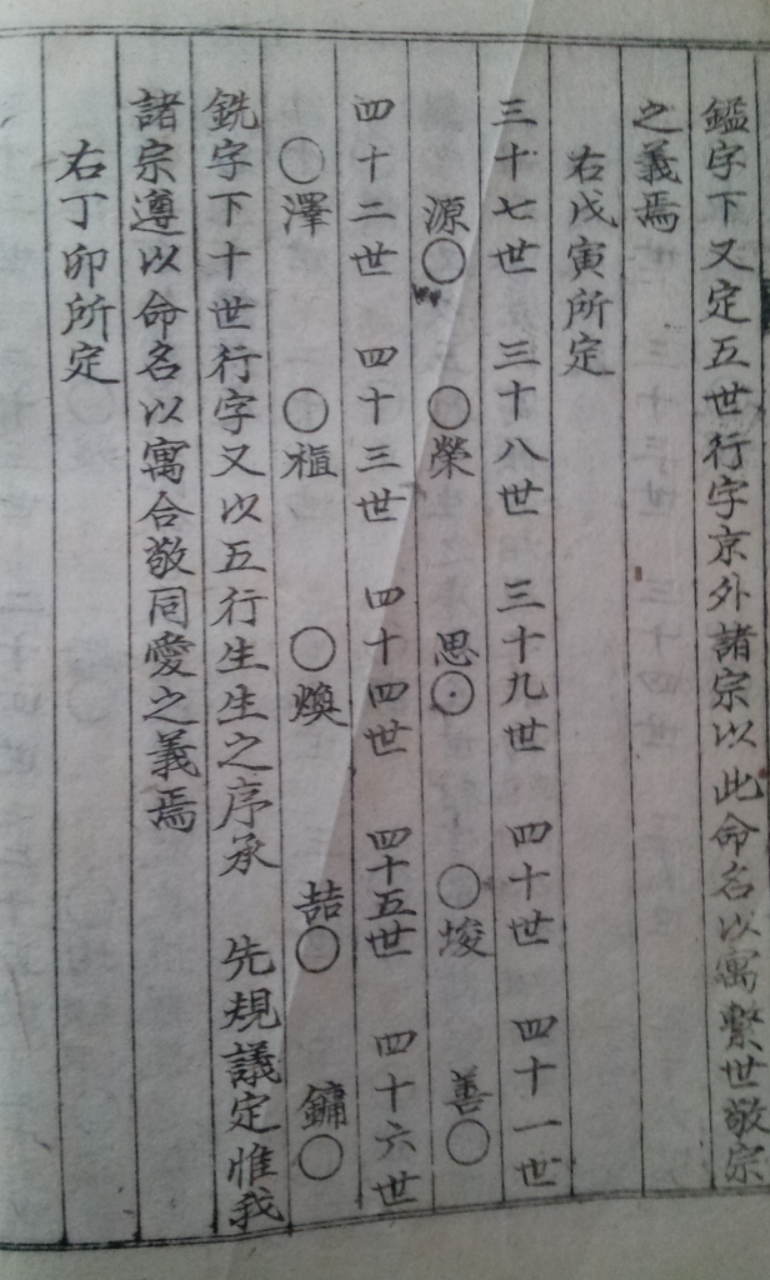 鑑字下又定五世行字京外諸宗以此命名以寓繫世敬宗
之義焉
右戊寅所定
三十七世 三十八世 三十九世 四十世 四十一世
源○ ○榮 思○ ○埈 善○
四十二世 四十三世 四十四世 四十五世 四十六世
○澤 ○植 ○煥 喆○ 鏞○
銑字下十世行字又以五行生生之序承 先規議定惟我
諸宗遵以命名以寓合敬同愛之義焉
右丁卯所定